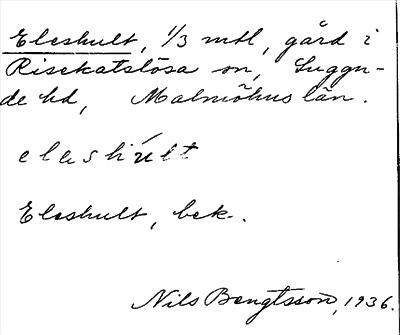 Eleshult, 1/3 mtl, gård i
Risekatslösa sn, Luggu-
de hd, Malmöhus län.
eleshult
Eleshult, bek.
Nils Bengtsson, 1936.